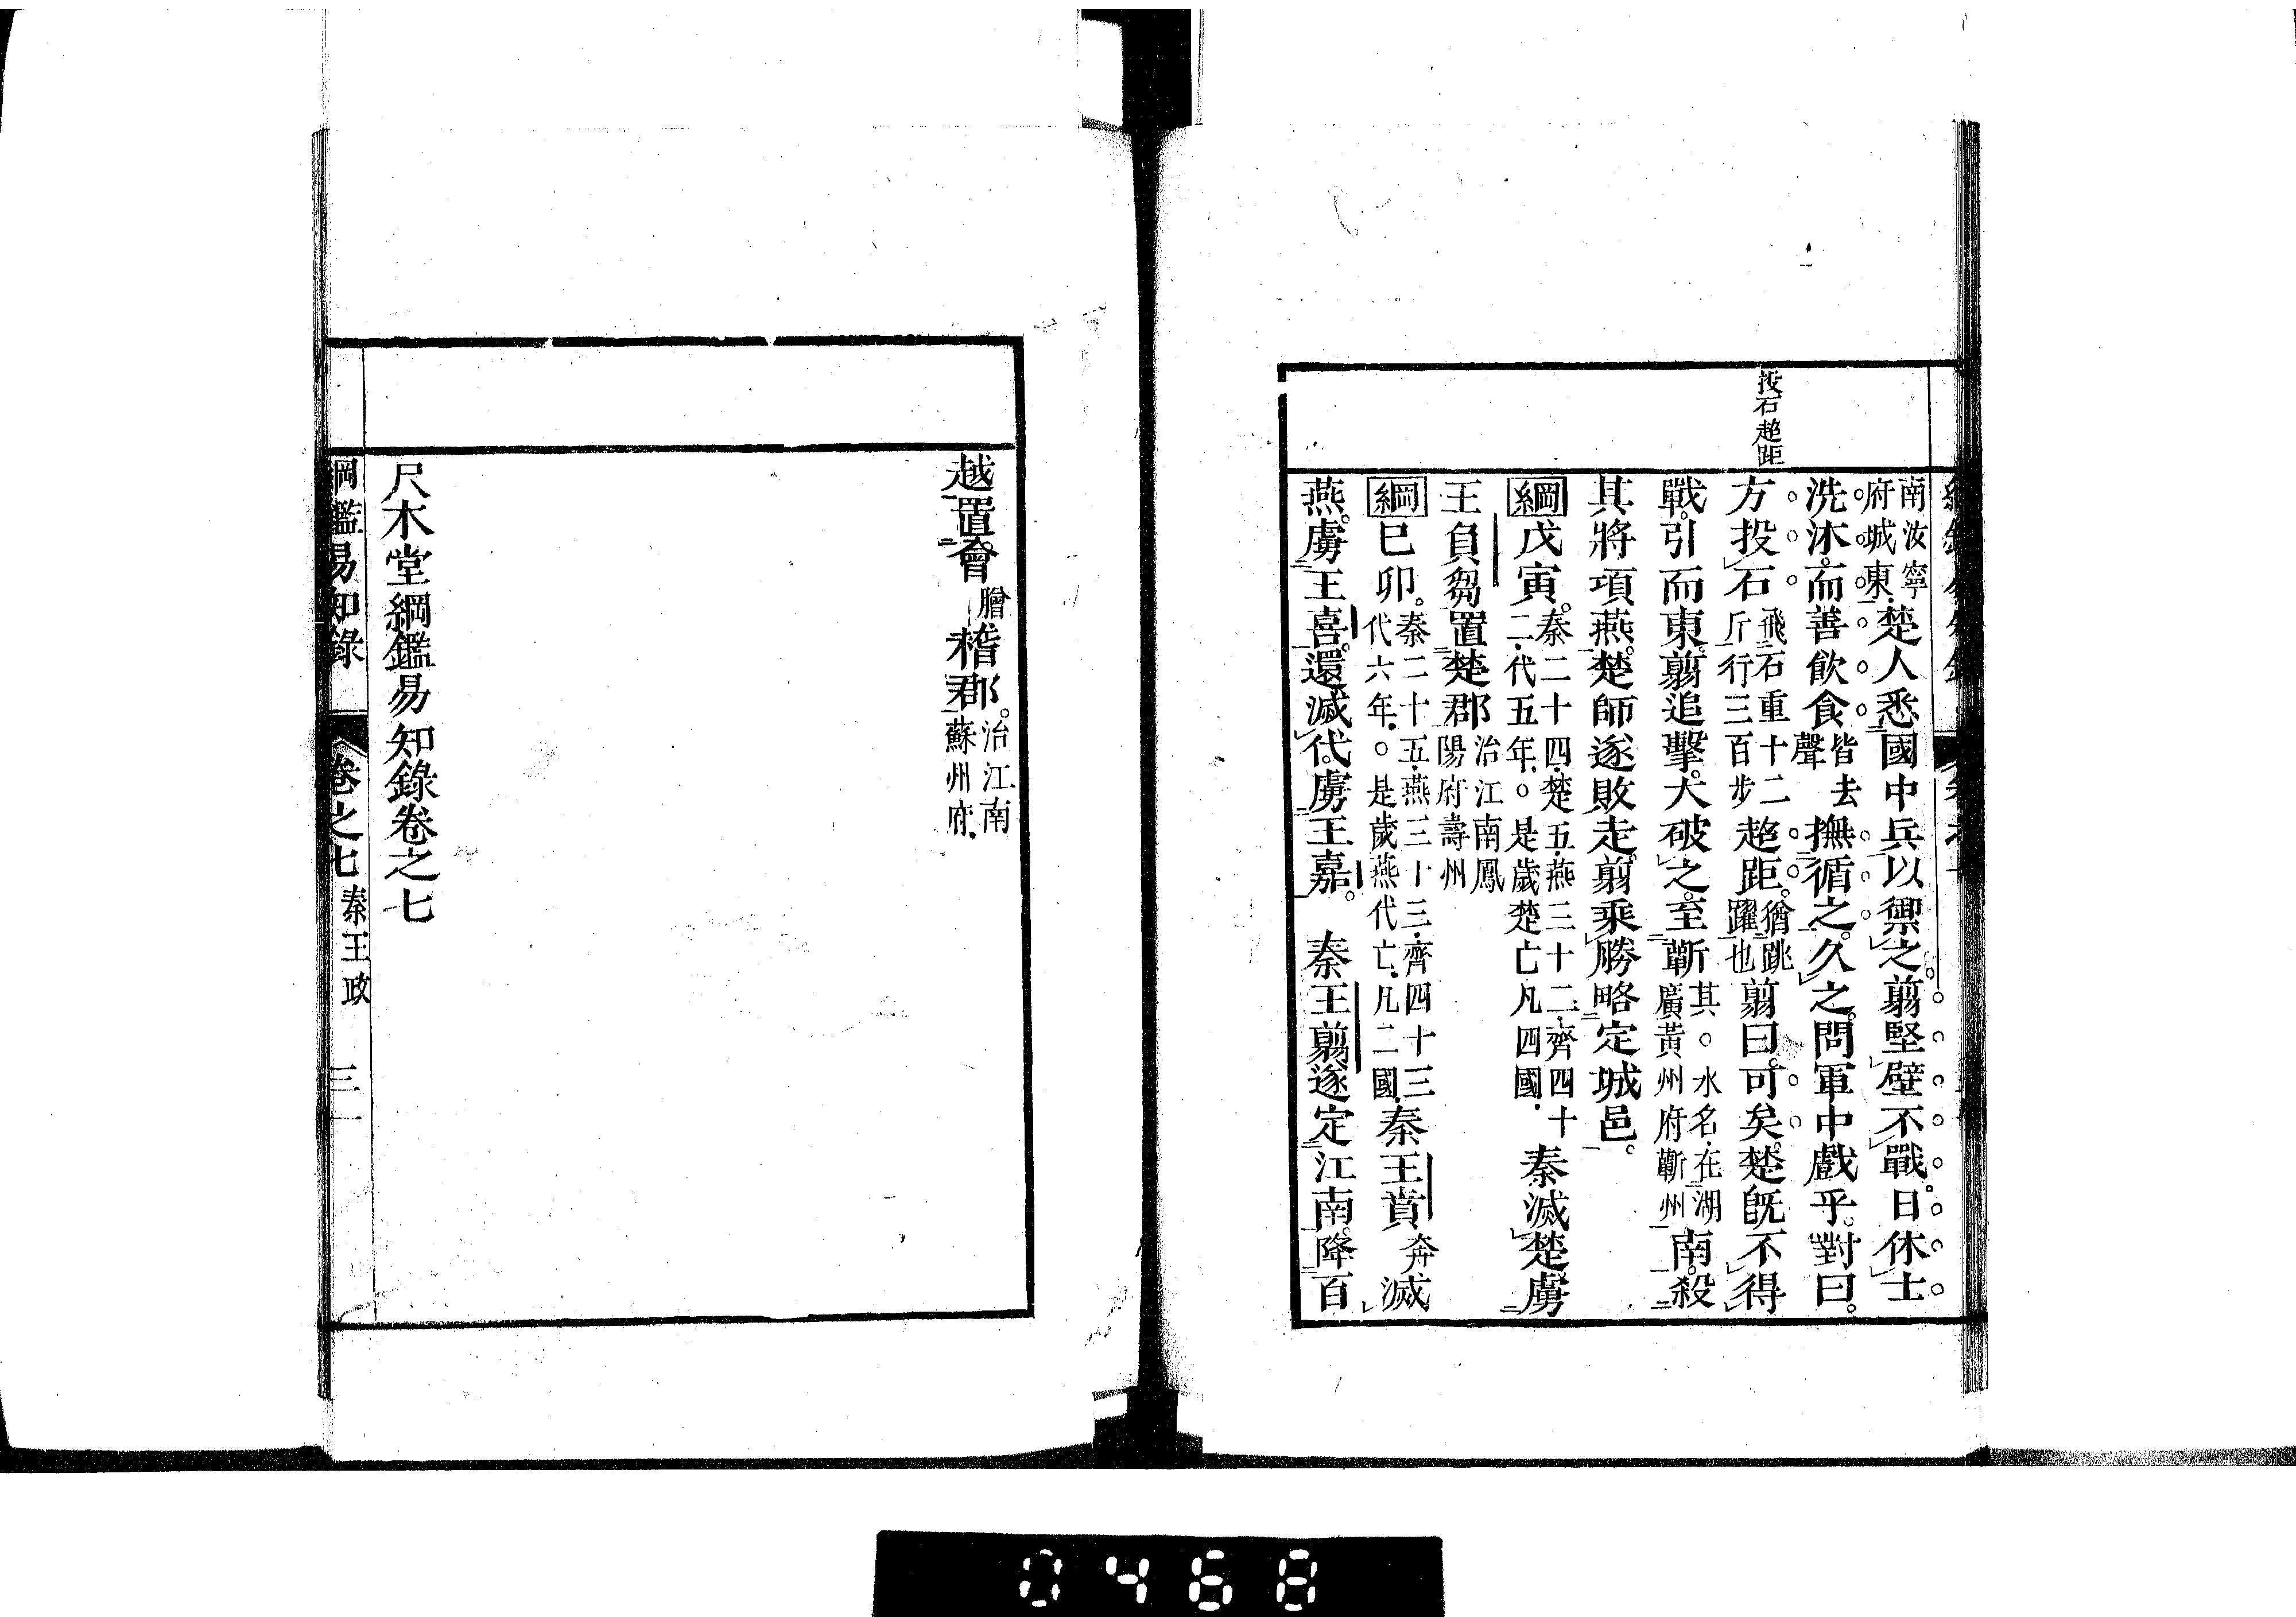 投石趂距
南汝寧府城東楚人悉國中兵以禦之。翦堅壁不戰。日休士
洗沐。而善飲食皆去聲撫循之。久之。問軍中戲乎。對曰。
方投石飛石重十二斤行三百步趂距。猶跳躍也翦曰。可矣。楚旣不得
戰。引而東。翦追擊。大破之。至蘄其。水名。在湖廣黃州府蘄州南。殺
其將項燕。楚師遂敗走。翦乘勝略定城邑。
綱戊寅。秦二十四。楚五。燕三十二。齊四十二。代五年。○是歲楚亡凡四國。秦滅楚虜
王負芻置楚郡治江南鳳陽府壽州
綱巳卯。秦二十五。燕三十三。齊四十三代六年。○是歲燕代亡。凡二國。秦王賁奔滅
燕。虜王喜。還滅代。虜王嘉。 秦王翦遂定江南。降百
越置會膾稽郡。治江南蘇州府。
尺木堂綱鑑易知錄卷之七
綱鑑易知錄 卷之七 秦王政 三一
0468